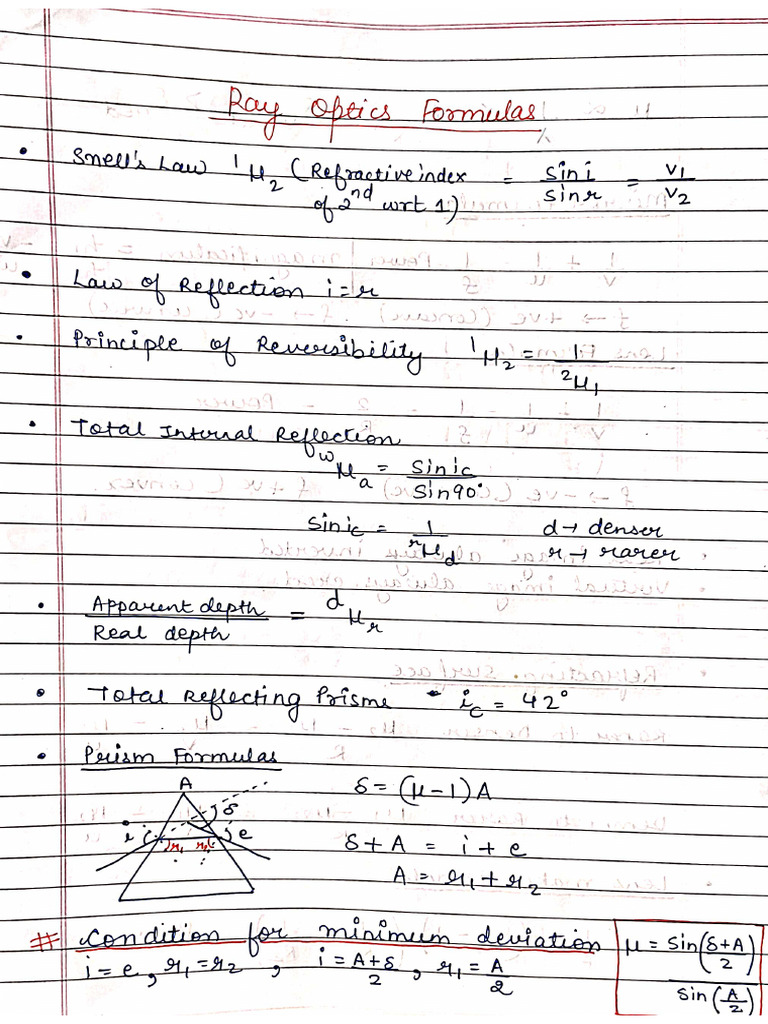 Ray Optics Formulas
• Snell's Law ¹μ₂ (Refractive index of 2nd wrt 1) = sin i / sin r = v₁ / v₂
• Law of Reflection i = r
• Principle of Reversibility ¹μ₂ = 1 / ²μ₁
• Total Internal Reflection
ʷμₐ = sin ic / sin 90°
sin ic = 1 / ʳμd d → denser
r → rarer
• Apparent depth / Real depth = ᵈμᵣ
• Total Reflecting Prisms • ic = 42°
• Prism Formulas
A
δ
i
e
r₁ r₂
δ = (μ-1)A
δ + A = i + e
A = r₁ + r₂
# Condition for minimum deviation
i = e, r₁ = r₂, i = A+δ / 2, r₁ = A / 2
μ = sin(δ+A / 2) / sin(A / 2)